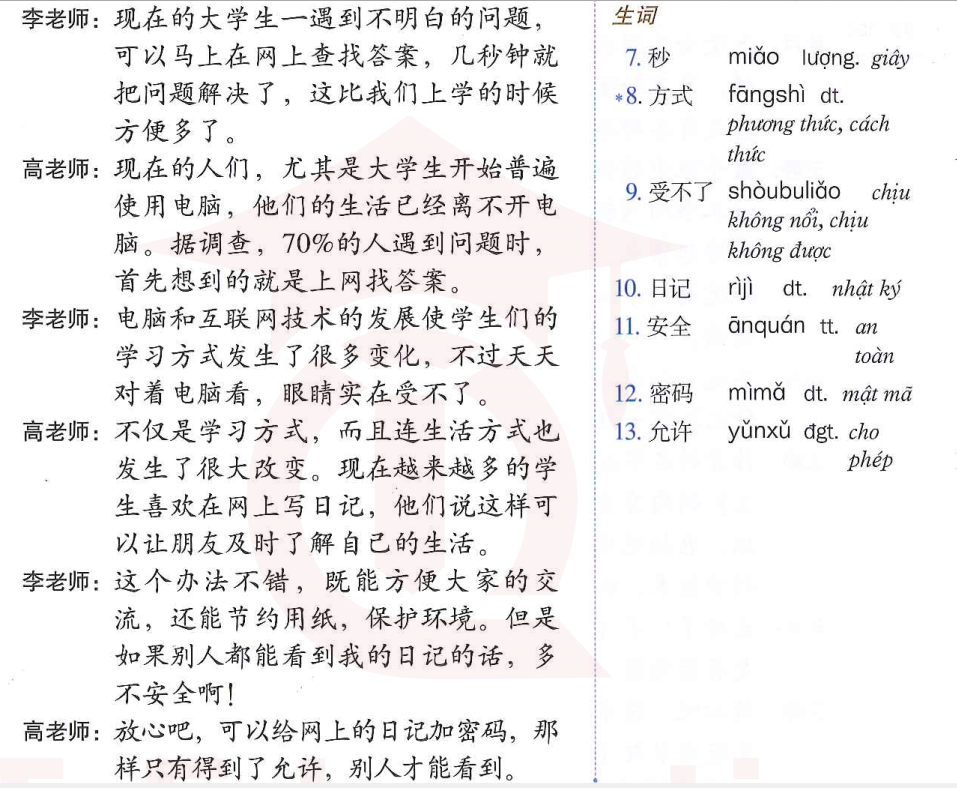 李老师：现在的大学生一遇到不明白的问题，
可以马上在网上查找答案，几秒钟就
把问题解决了，这比我们上学的时候
方便多了。
高老师：现在的人们，尤其是大学生开始普遍
使用电脑，他们的生活已经离不开电
脑。据调查，70%的人遇到问题时，
首先想到的就是上网找答案。
李老师：电脑和互联网技术的发展使学生们的
学习方式发生了很多变化，不过天天
对着电脑看，眼睛实在受不了。
高老师：不仅是学习方式，而且连生活方式也
发生了很大改变。现在越来越多的学
生喜欢在网上写日记，他们说这样可
以让朋友及时了解自己的生活。
李老师：这个办法不错，既能方便大家的交
流，还能节约用纸，保护环境。但是
如果别人都能看到我的日记的话，多
不安全啊！
高老师：放心吧，可以给网上的日记加密码，那
样只有得到了允许，别人才能看到。
生词
7. 秒 miǎo lượng. giây
*8. 方式 fāngshì dt.
phương thức, cách
thức
9. 受不了 shòubuliǎo chịu
không nổi, chịu
không được
10. 日记 rìjì dt. nhật ký
11. 安全 ānquán tt. an
toàn
12. 密码 mìmǎ dt. mật mã
13. 允许 yǔnxǔ đgt. cho
phép